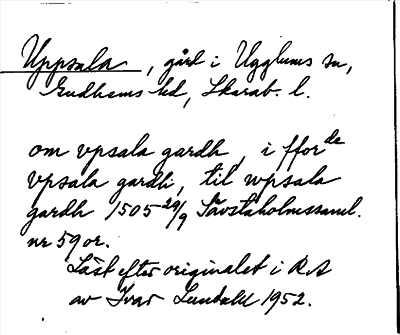 Uppsala, gård i Ugglums sn,
Gudhems hd, Skarab. l.
om vpsala gardh, i fforde
vpsala gardi, til wpsala
gardh 1505 29/9 Sävstaholmssaml.
nr 59 or.
Läst efter originalet i RA
av Ivar Lundahl 1952.